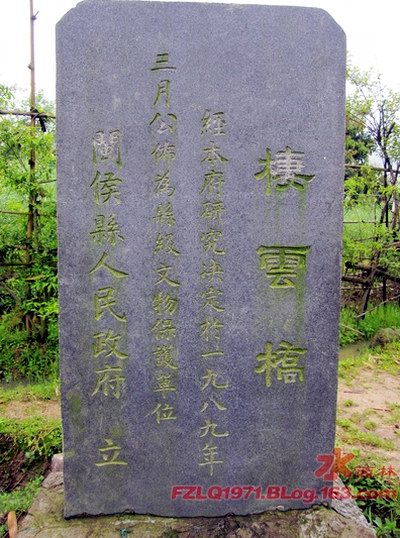 棲雲橋
經本府研究決定於一九八九年
三月公佈為縣級文物保護單位
閩侯縣人民政府 立
FZLQ1971.BLog.163.com